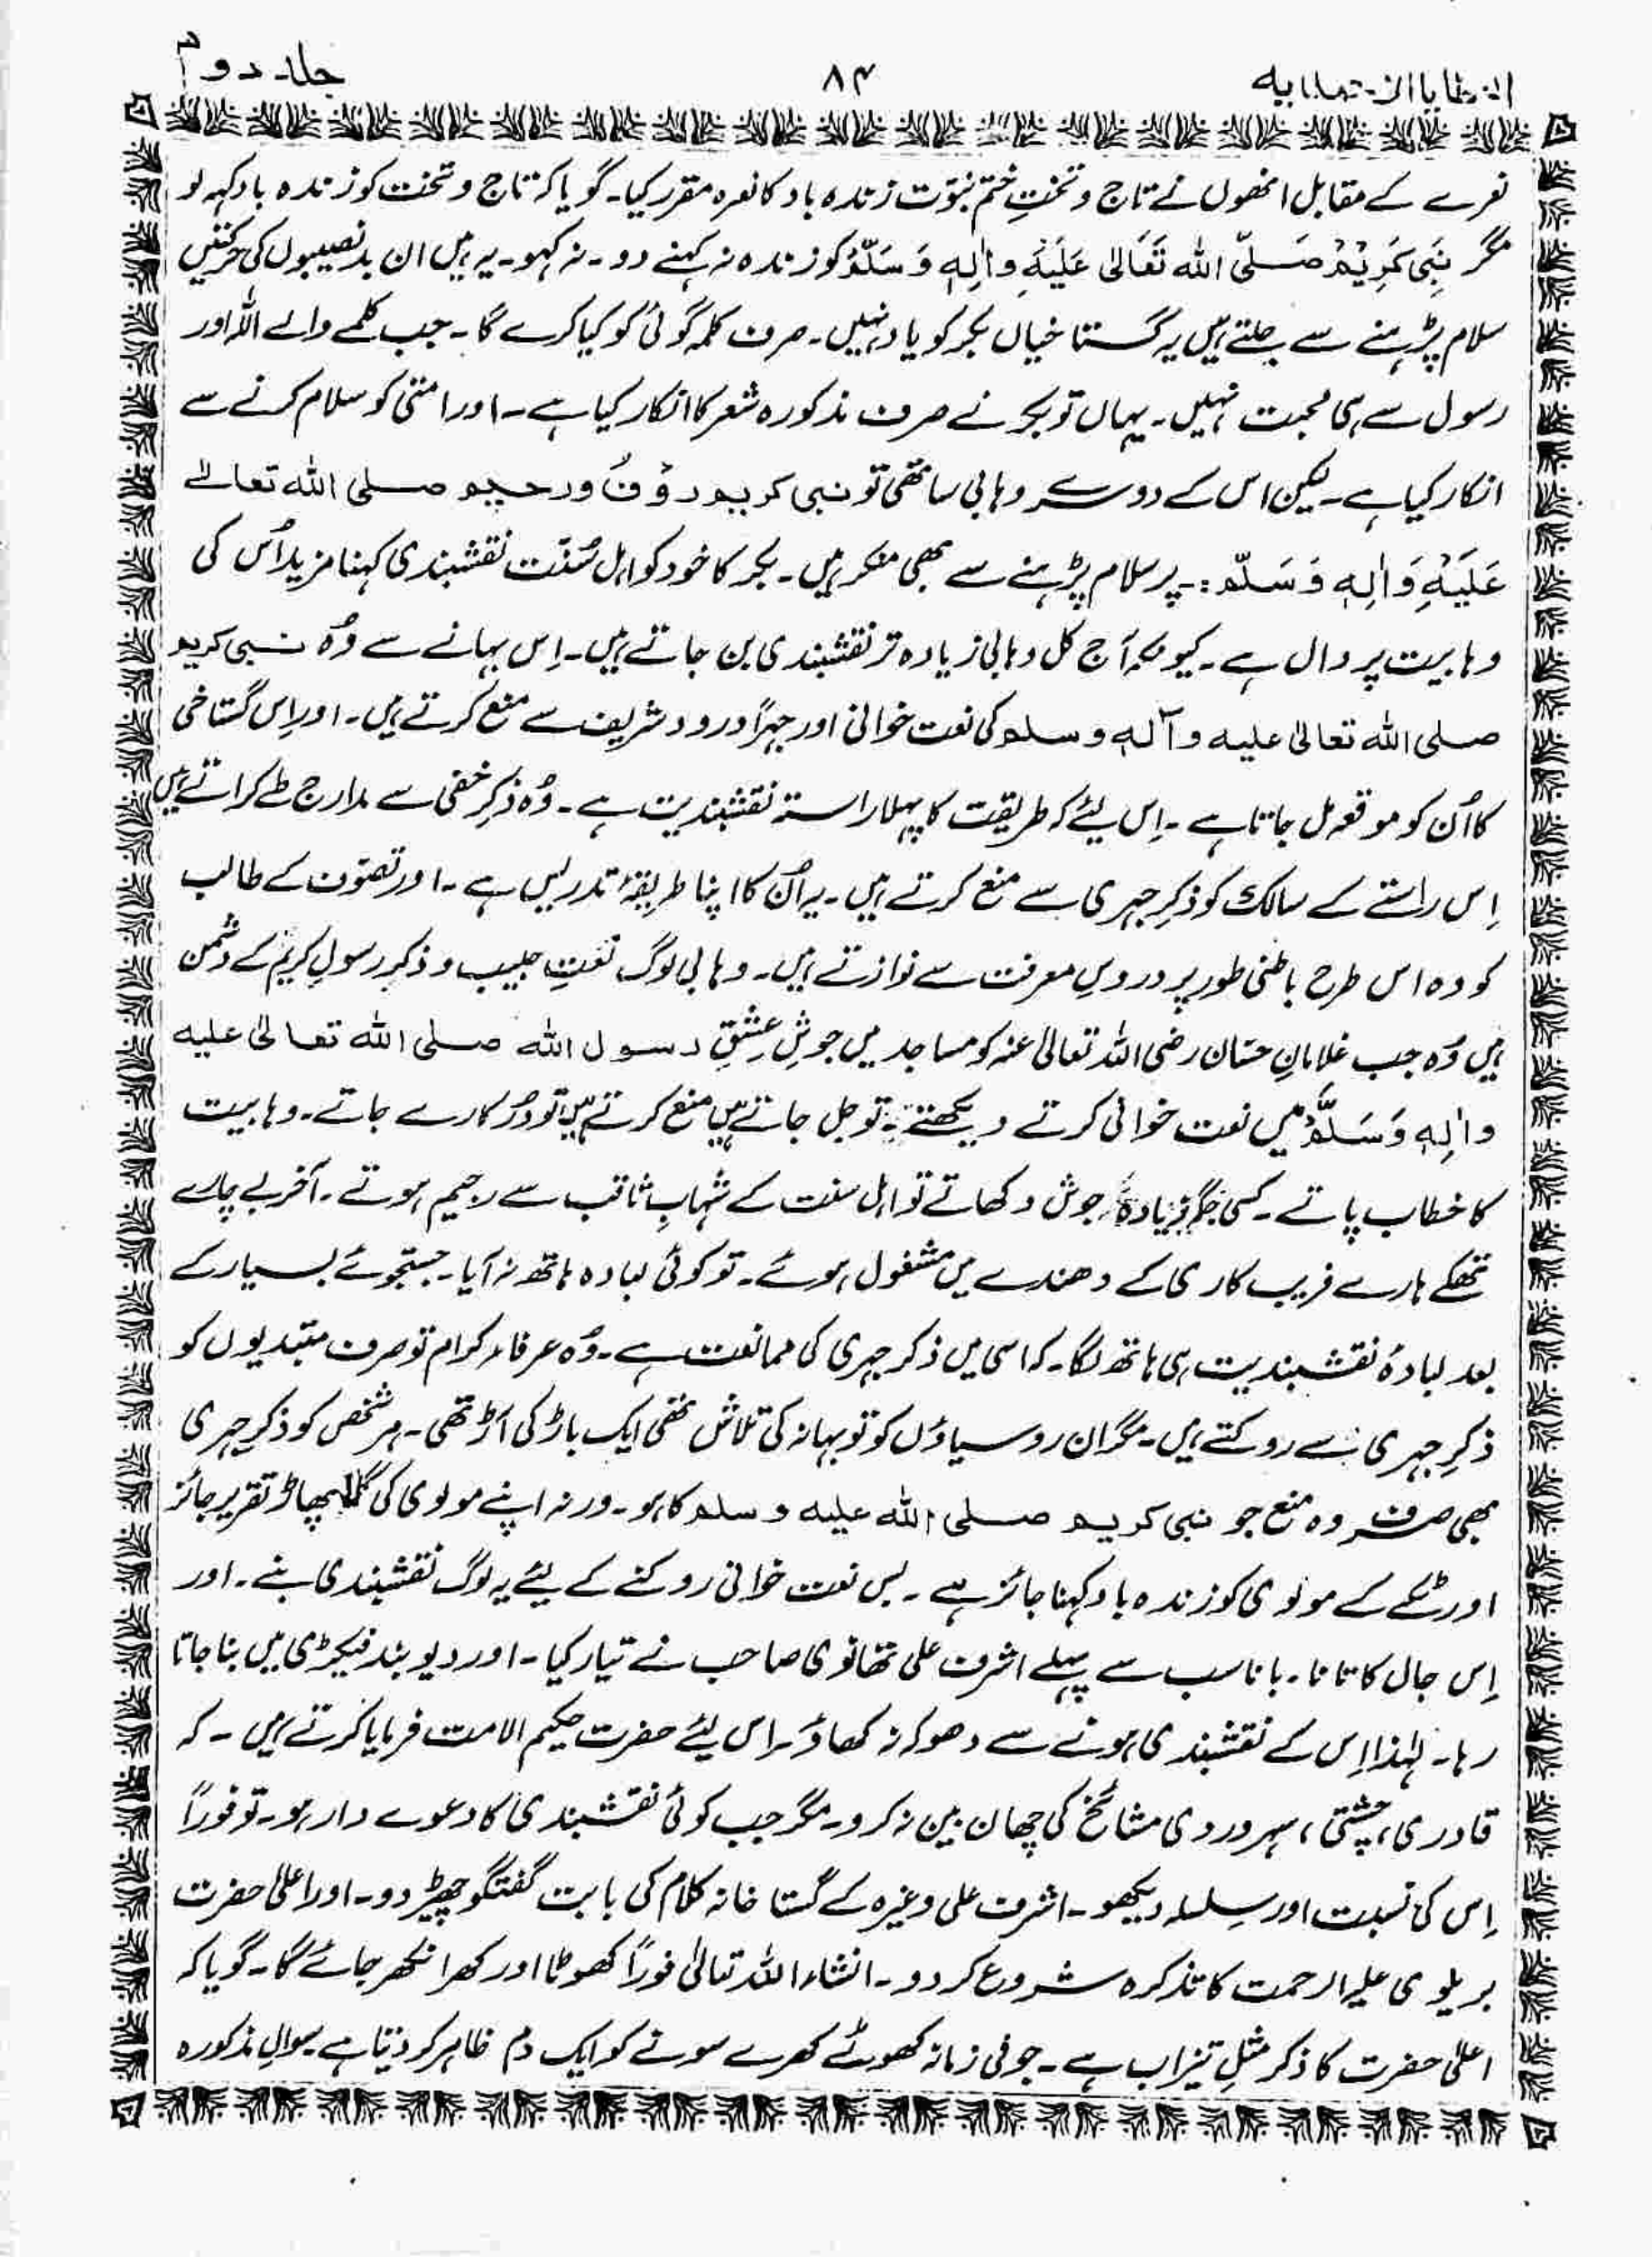 العطایا الاحمدیہ ۸۴ جلد دوم
نعرے کے مقابل انھوں نے تاج و تختِ ختم نبوّت زندہ باد کا نعرہ مقرر کیا۔ گویا کہ تاج و تخت کو زندہ باد کہہ لو
مگر نَبِی کَرِیْمْ صَلَّی اللہ تَعَالیٰ عَلَیْہِ واٰلِہٖ وَسَلَّمْ کو زندہ نہ کہنے دو۔ نہ کہو۔ یہ ہیں ان بدنصیبوں کی حرکتیں
سلام پڑہنے سے جلتے ہیں یہ گستاخیاں بکر کو یاد نہیں۔ صرف کلمہ گوئی کو کیا کرے گا۔ جب کلمے والے اللہ اور
رسول سے ہی محبت نہیں۔ یہاں تو بکر نے صرف مذکورہ شعر کا انکار کیا ہے۔ اور امتی کو سلام کرنے سے
انکار کیا ہے۔ لیکن اس کے دوسرے وہابی ساتھی تو نبی کریم رؤفٌ ورحیم صلی اللہ تعالےٰ
عَلَیْہِ وَاٰلِہٖ وَسَلَّم :۔ پر سلام پڑہنے سے بھی منکر ہیں۔ بکر کا خود کو اہل سُنّت نقشبندی کہنا مزید اُس کی
وہابیت پر دال ہے۔ کیونکہ آج کل وہابی زیادہ تر نقشبندی بن جاتے ہیں۔ اِس بہانے سے وُہ نبی کریم
صلی اللہ تعالیٰ علیہ وآلہٖ وسلم کی نعت خوانی اور جہراً درود شریف سے منع کرتے ہیں۔ اور اِس گستاخی
کا اُن کو موقعہ مل جاتا ہے۔ اِس لیئے کہ طریقت کا پہلا راستہ نقشبندیت ہے۔ وُہ ذکرِ خفی سے مدارج طے کراتے ہیں
اِس راستے کے سالک کو ذکرِ جہری سے منع کرتے ہیں۔ یہ اُن کا اپنا طریقۂ تدریس ہے۔ اور تصوّف کے طالب
کو وہ اس طرح باطنی طور پر دروسِ معرفت سے نوازتے ہیں۔ وہابی لوگ نعتِ حبیب و ذکرِ رسولِ کریم کے دشمن
ہیں وُہ جب غلامانِ حسّان رضی اللہ تعالیٰ عنہ کو مساجد میں جوشِ عِشقِ رسول اللہ صلی اللہ تعالیٰ علیہ
واٰلِہٖ وَسَلَّمْ میں نعت خوانی کرتے دیکھتے ہیں تو جل جاتے ہیں منع کرتے ہیں تو دُرکارے جاتے۔ وہابیت
کا خطاب پاتے۔ کسی جگہ زیادہ جوش دکھاتے تو اہل سنت کے شہابِ ثاقب سے رجیم ہوتے۔ آخر بے چارے
تھکے ہارے فریب کاری کے دھندے میں مشغول ہوئے۔ تو کوئی لبادہ ہاتھ نہ آیا۔ جستجوئے بسیار کے
بعد لبادۂ نقشبندیت ہی ہاتھ لگا۔ کہ اسی میں ذکر جہری کی ممانعت ہے۔ وُہ عرفاءِ کرام تو صرف مبتدیوں کو
ذکرِ جہری سے روکتے ہیں۔ مگر ان روسیاؤں کو تو بہانہ کی تلاش تھی ایک باڑ کی آڑ تھی۔ ہر شخص کو ذکرِ جہری
بھی صرف وہ منع جو نبی کریم صلی اللہ علیہ وسلم کا ہو۔ ورنہ اپنے مولوی کی گلا پھاڑ تقریر جائز
اور ٹکے کے مولوی کو زندہ باد کہنا جائز ہے۔ بس نعت خوانی روکنے کے لیئے یہ لوگ نقشبندی بنے۔ اور
اِس جال کا تانا۔ بانا سب سے پہلے اشرف علی تھانوی صاحب نے تیار کیا۔ اور دیوبند فیکٹری میں بنا جاتا
رہا۔ لہٰذا اِس کے نقشبندی ہونے سے دھوکہ نہ کھاؤ۔ اس لیئے حضرت حکیم الامت فرمایا کرتے ہیں۔ کہ
قادری، چشتی، سہروردی مشائخ کی چھان بین نہ کرو۔ مگر جب کوئی نقشبندی کا دعوے دار ہو۔ تو فوراً
اِس کی نسبت اور سِلسلہ دیکھو۔ اشرف علی وغیرہ کے گستاخانہ کلام کی بابت گفتگو چھیڑ دو۔ اور اعلیٰ حضرت
بریلوی علیہ الرحمت کا تذکرہ شروع کر دو۔ انشاء اللہ تعالیٰ فوراً کھوٹا اور کھرا نکھر جائے گا۔ گویا کہ
اعلیٰ حضرت کا ذکر مثلِ تیزاب ہے۔ جو فی زمانہ کھوٹے کھرے سونے کو ایک دم ظاہر کر دیتا ہے سوالِ مذکورہ